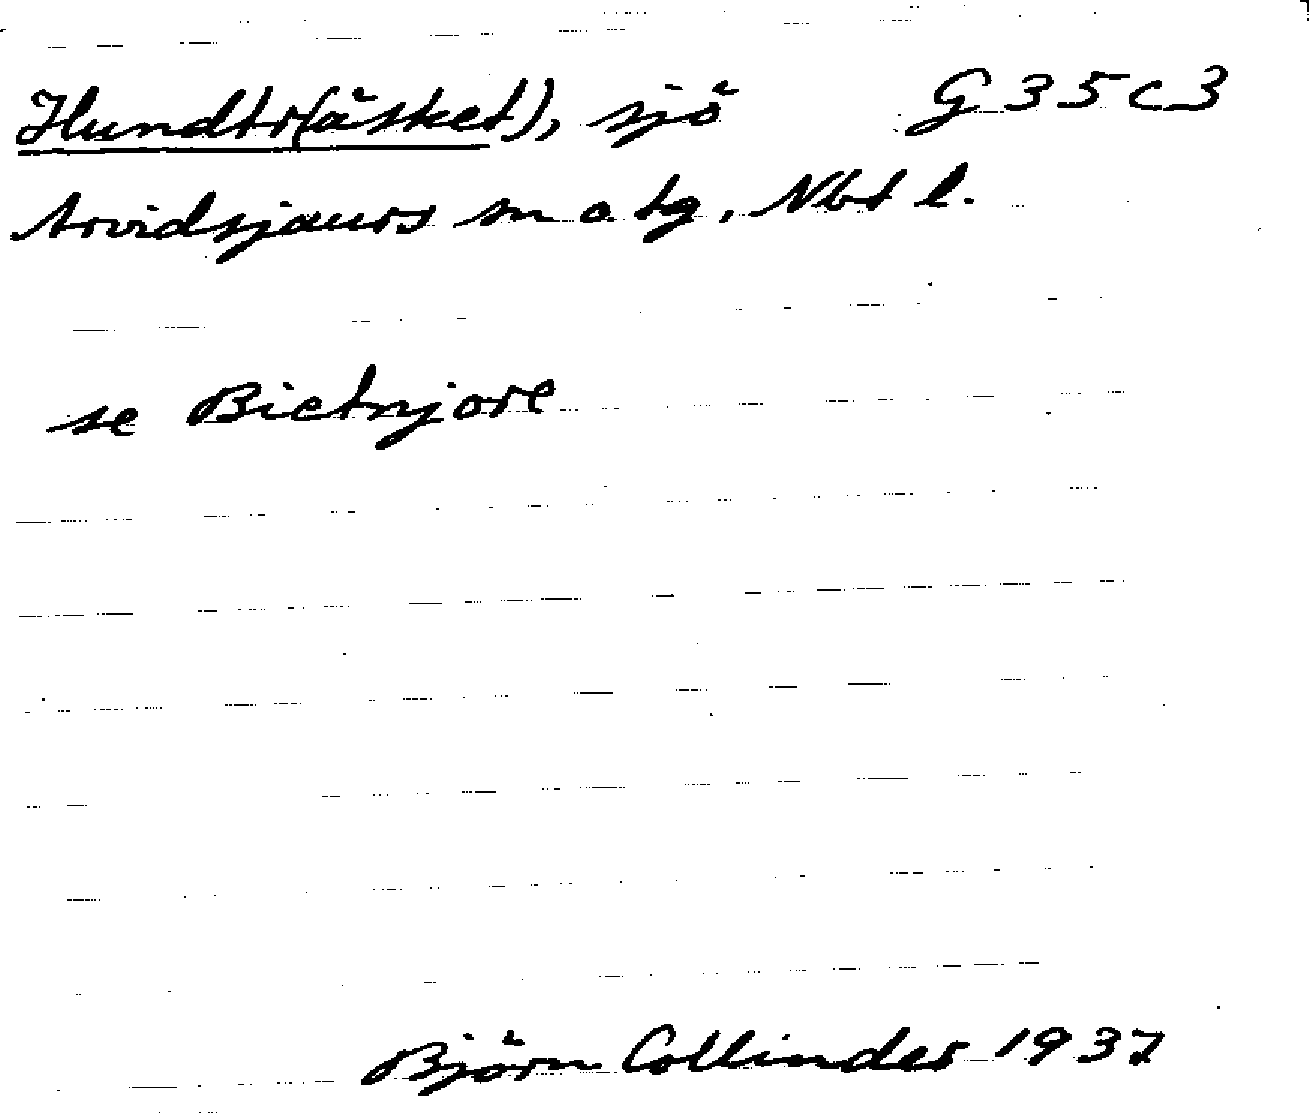 Hundtr(äsket), sjö G 35 c 3
Arvidsjaurs sn o tg, Nbt l.
se Bietnjore
Björn Collinder 1937